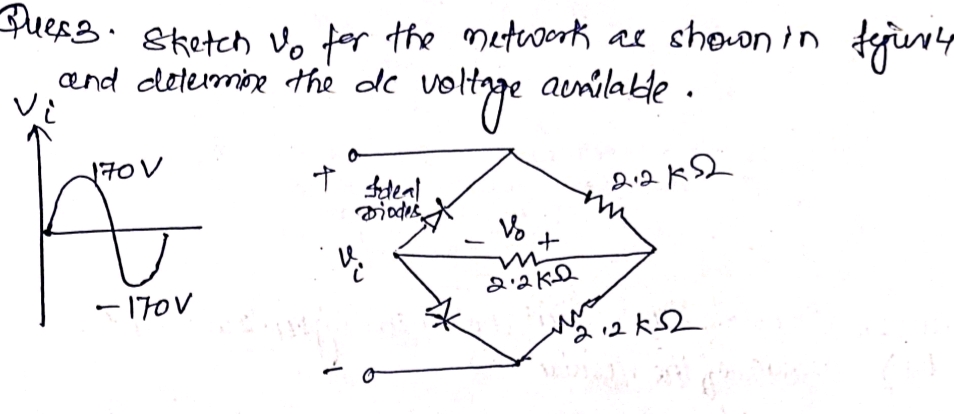 Ques3. Sketch Vo for the network as shown in figure 4
and determine the dc voltage available.
Vi
170V
-170V
+
Ideal
Diodes
2.2 KΩ
- Vo +
Vi
2.2 KΩ
2.2 KΩ
-